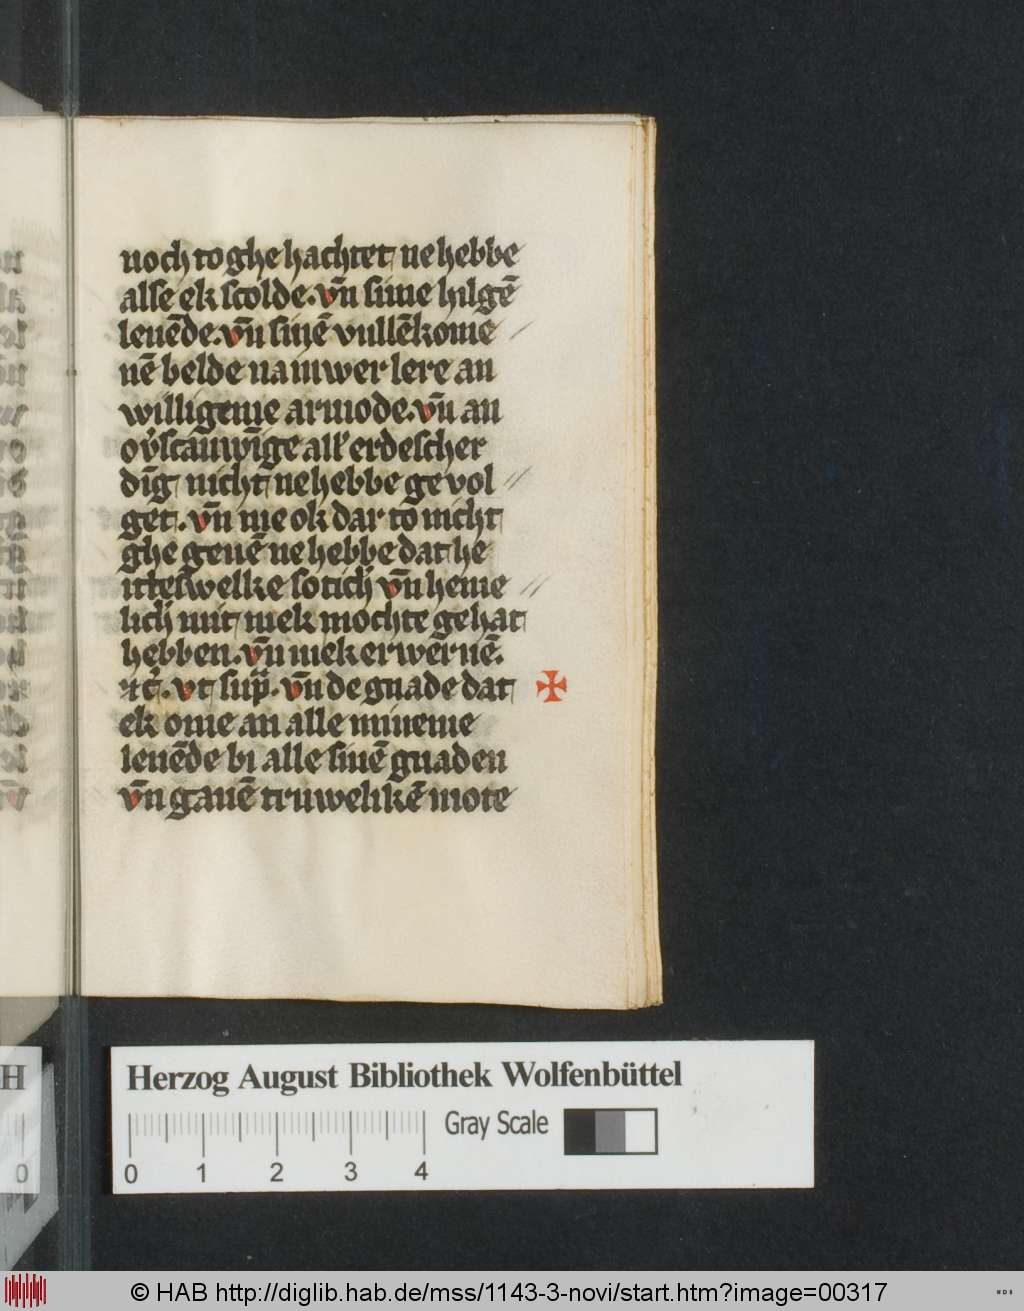 noch to ghe hachtet ne hebbe
alse ek scolde. vn̄ sime hilgē
leuēde. vn̄ sinē vullēkome
nē belde na iuwer lere an
willigeme armode. vn̄ an
erdescher
dīg nicht ne hebbe ge vol
get. vn̄ me ok dar to nicht
ghe geuē ne hebbe dat he
welke vn̄ heme
lich mit mek mochte gehat
hebben. vn̄ mek erweruē.
vt sup. vn̄ de gnade dat
ek ome an alle mineme
leuēde bi alle sinē gnaden
vn̄ gauē truwelikē mote
Herzog August Bibliothek Wolfenbüttel
Gray Scale
0 1 2 3 4
H
0
© HAB http://diglib.hab.de/mss/1143-3-novi/start.htm?image=00317